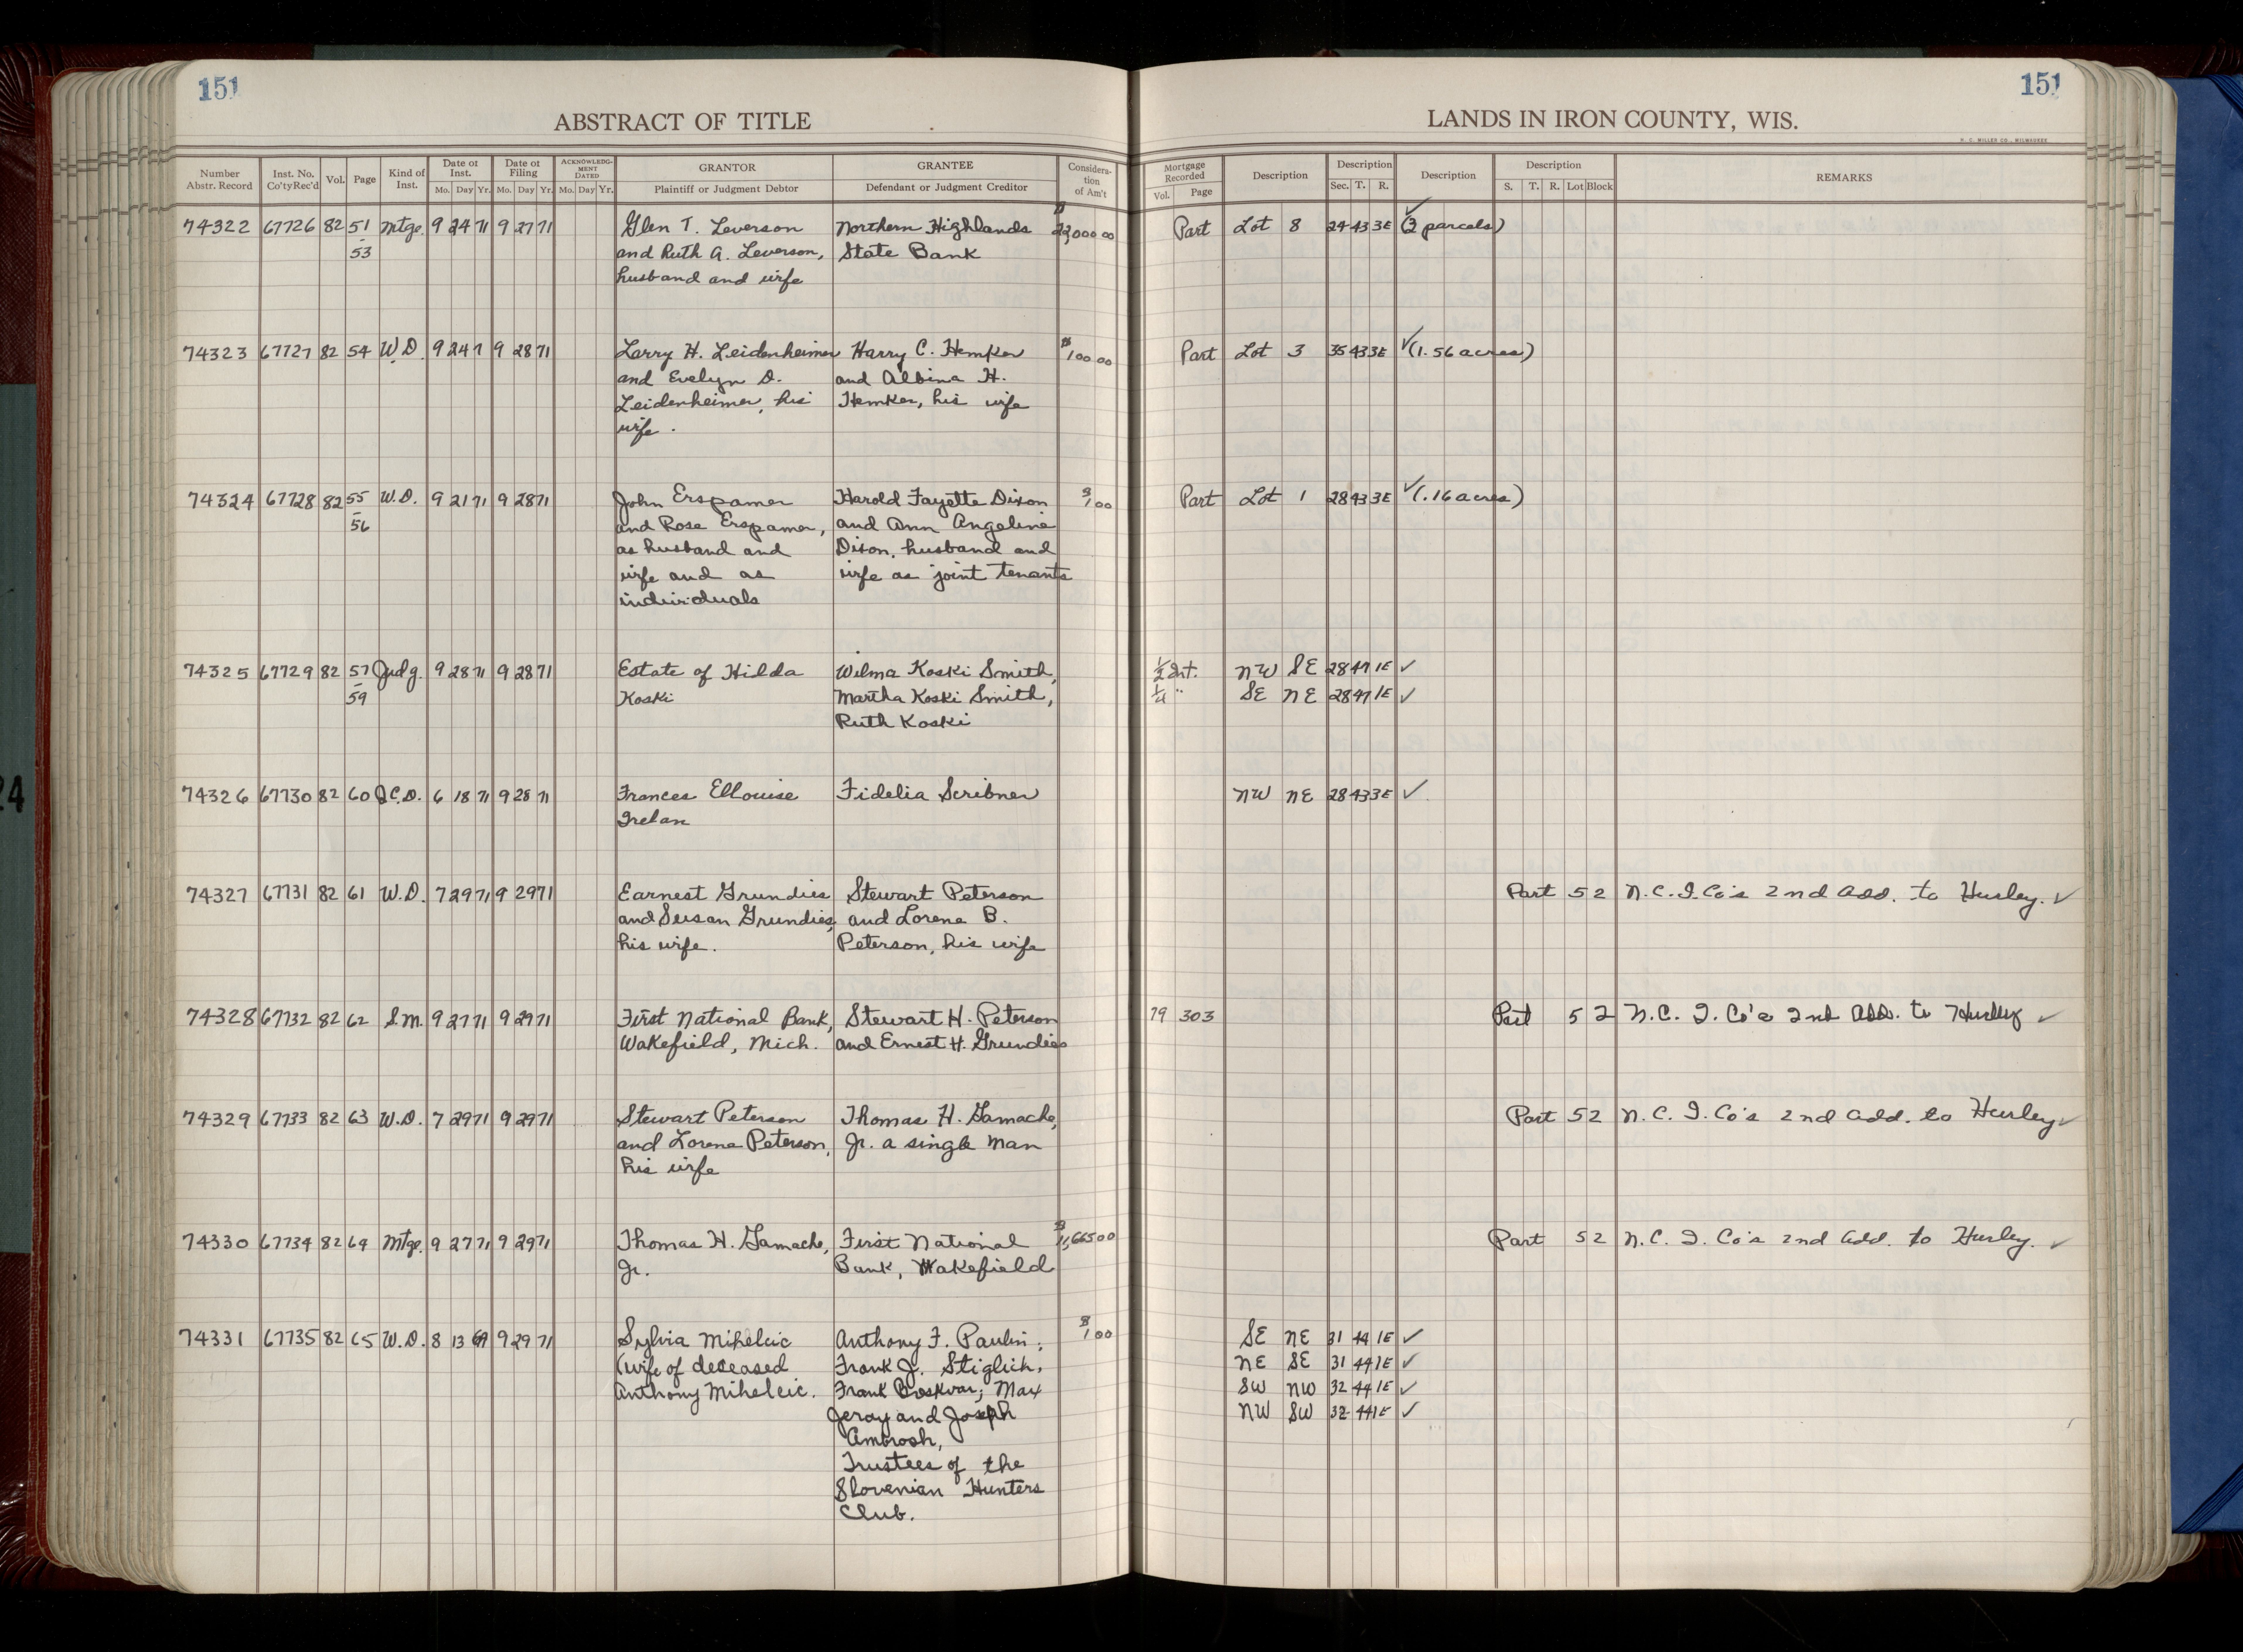 151
151
ABSTRACT OF TITLE
LANDS IN IRON COUNTY, WIS.
H. C. MILLER CO., MILWAUKEE
Number Abstr. Record | Inst. No. Co'ty Rec'd | Vol. | Page | Kind of Inst. | Date of Inst. Mo. Day Yr. | Date of Filing Mo. Day Yr. | ACKNOWLEDGMENT DATED Mo. Day Yr. | GRANTOR Plaintiff or Judgment Debtor | GRANTEE Defendant or Judgment Creditor | Consideration of Am't | Mortgage Recorded Vol. Page | Description | Description Sec. T. R. | Description | Description S. T. R. Lot Block | REMARKS
74322 67726 82 51 Mtge. 9 24 71 9 27 71 Glen T. Leverson Northern Highlands $ 22,000 00 Part Lot 8 24 43 3E (2 parcels) ✓
- 53 and Ruth A. Leverson, State Bank
husband and wife
74323 67727 82 54 W.D. 9 24 7 9 28 71 Larry H. Leidenheimer Harry C. Hemker $ 100 00 Part Lot 3 35 43 3E ✓ (1.56 acres)
and Evelyn D. and Albina H.
Leidenheimer, his Hemker, his wife
wife.
74324 67728 82 55 W.D. 9 21 71 9 28 71 John Erspamer Harold Fayette Dixon $ 1 00 Part Lot 1 28 43 3E ✓ (.16 acres)
- 56 and Rose Erspamer, and Ann Angeline
as husband and Dixon, husband and
wife and as wife as joint tenants
individuals
74325 67729 82 57 Judg. 9 28 71 9 28 71 Estate of Hilda Wilma Koski Smith, 1/2 Int. NW SE 28 47 1E ✓
- 59 Koski Martha Koski Smith, 1/4 " SE NE 28 47 1E ✓
Ruth Koski
74326 67730 82 60 Q.C.D. 6 18 71 9 28 71 Frances Ellouise Fidelia Scribner NW NE 28 43 3E ✓
Irelan
74327 67731 82 61 W.D. 7 29 71 9 29 71 Earnest Grundies Stewart Peterson Part 5 2 N.C.I.Co's 2nd Add. to Hurley. ✓
and Susan Grundies, and Lorene B.
his wife. Peterson, his wife
74328 67732 82 62 S.M. 9 27 71 9 29 71 First National Bank, Stewart H. Peterson 79 303 Part 5 2 N.C. I. Co's 2nd Add. to Hurley ✓
Wakefield, Mich. and Ernest H. Grundies
74329 67733 82 63 W.D. 7 29 71 9 29 71 Stewart Peterson Thomas H. Gamache, Part 5 2 N.C. I. Co's 2nd Add. to Hurley ✓
and Lorene Peterson, Jr. a single man
his wife
74330 67734 82 64 Mtge. 9 27 71 9 29 71 Thomas H. Gamache, First National $ 11,665 00 Part 5 2 N.C. I. Co's 2nd Add. to Hurley. ✓
Jr. Bank, Wakefield
74331 67735 82 65 W.D. 8 13 69 9 29 71 Sylvia Mihelcic Anthony F. Paulin; $ 1 00 SE NE 31 44 1E ✓
(wife of deceased Frank J. Stiglich, NE SE 31 44 1E ✓
Anthony Mihelcic. Frank Boskvar; Max SW NW 32 44 1E ✓
Jeray and Joseph NW SW 32 44 1E ✓
Ambrosh,
Trustees of the
Slovenian Hunters
Club.